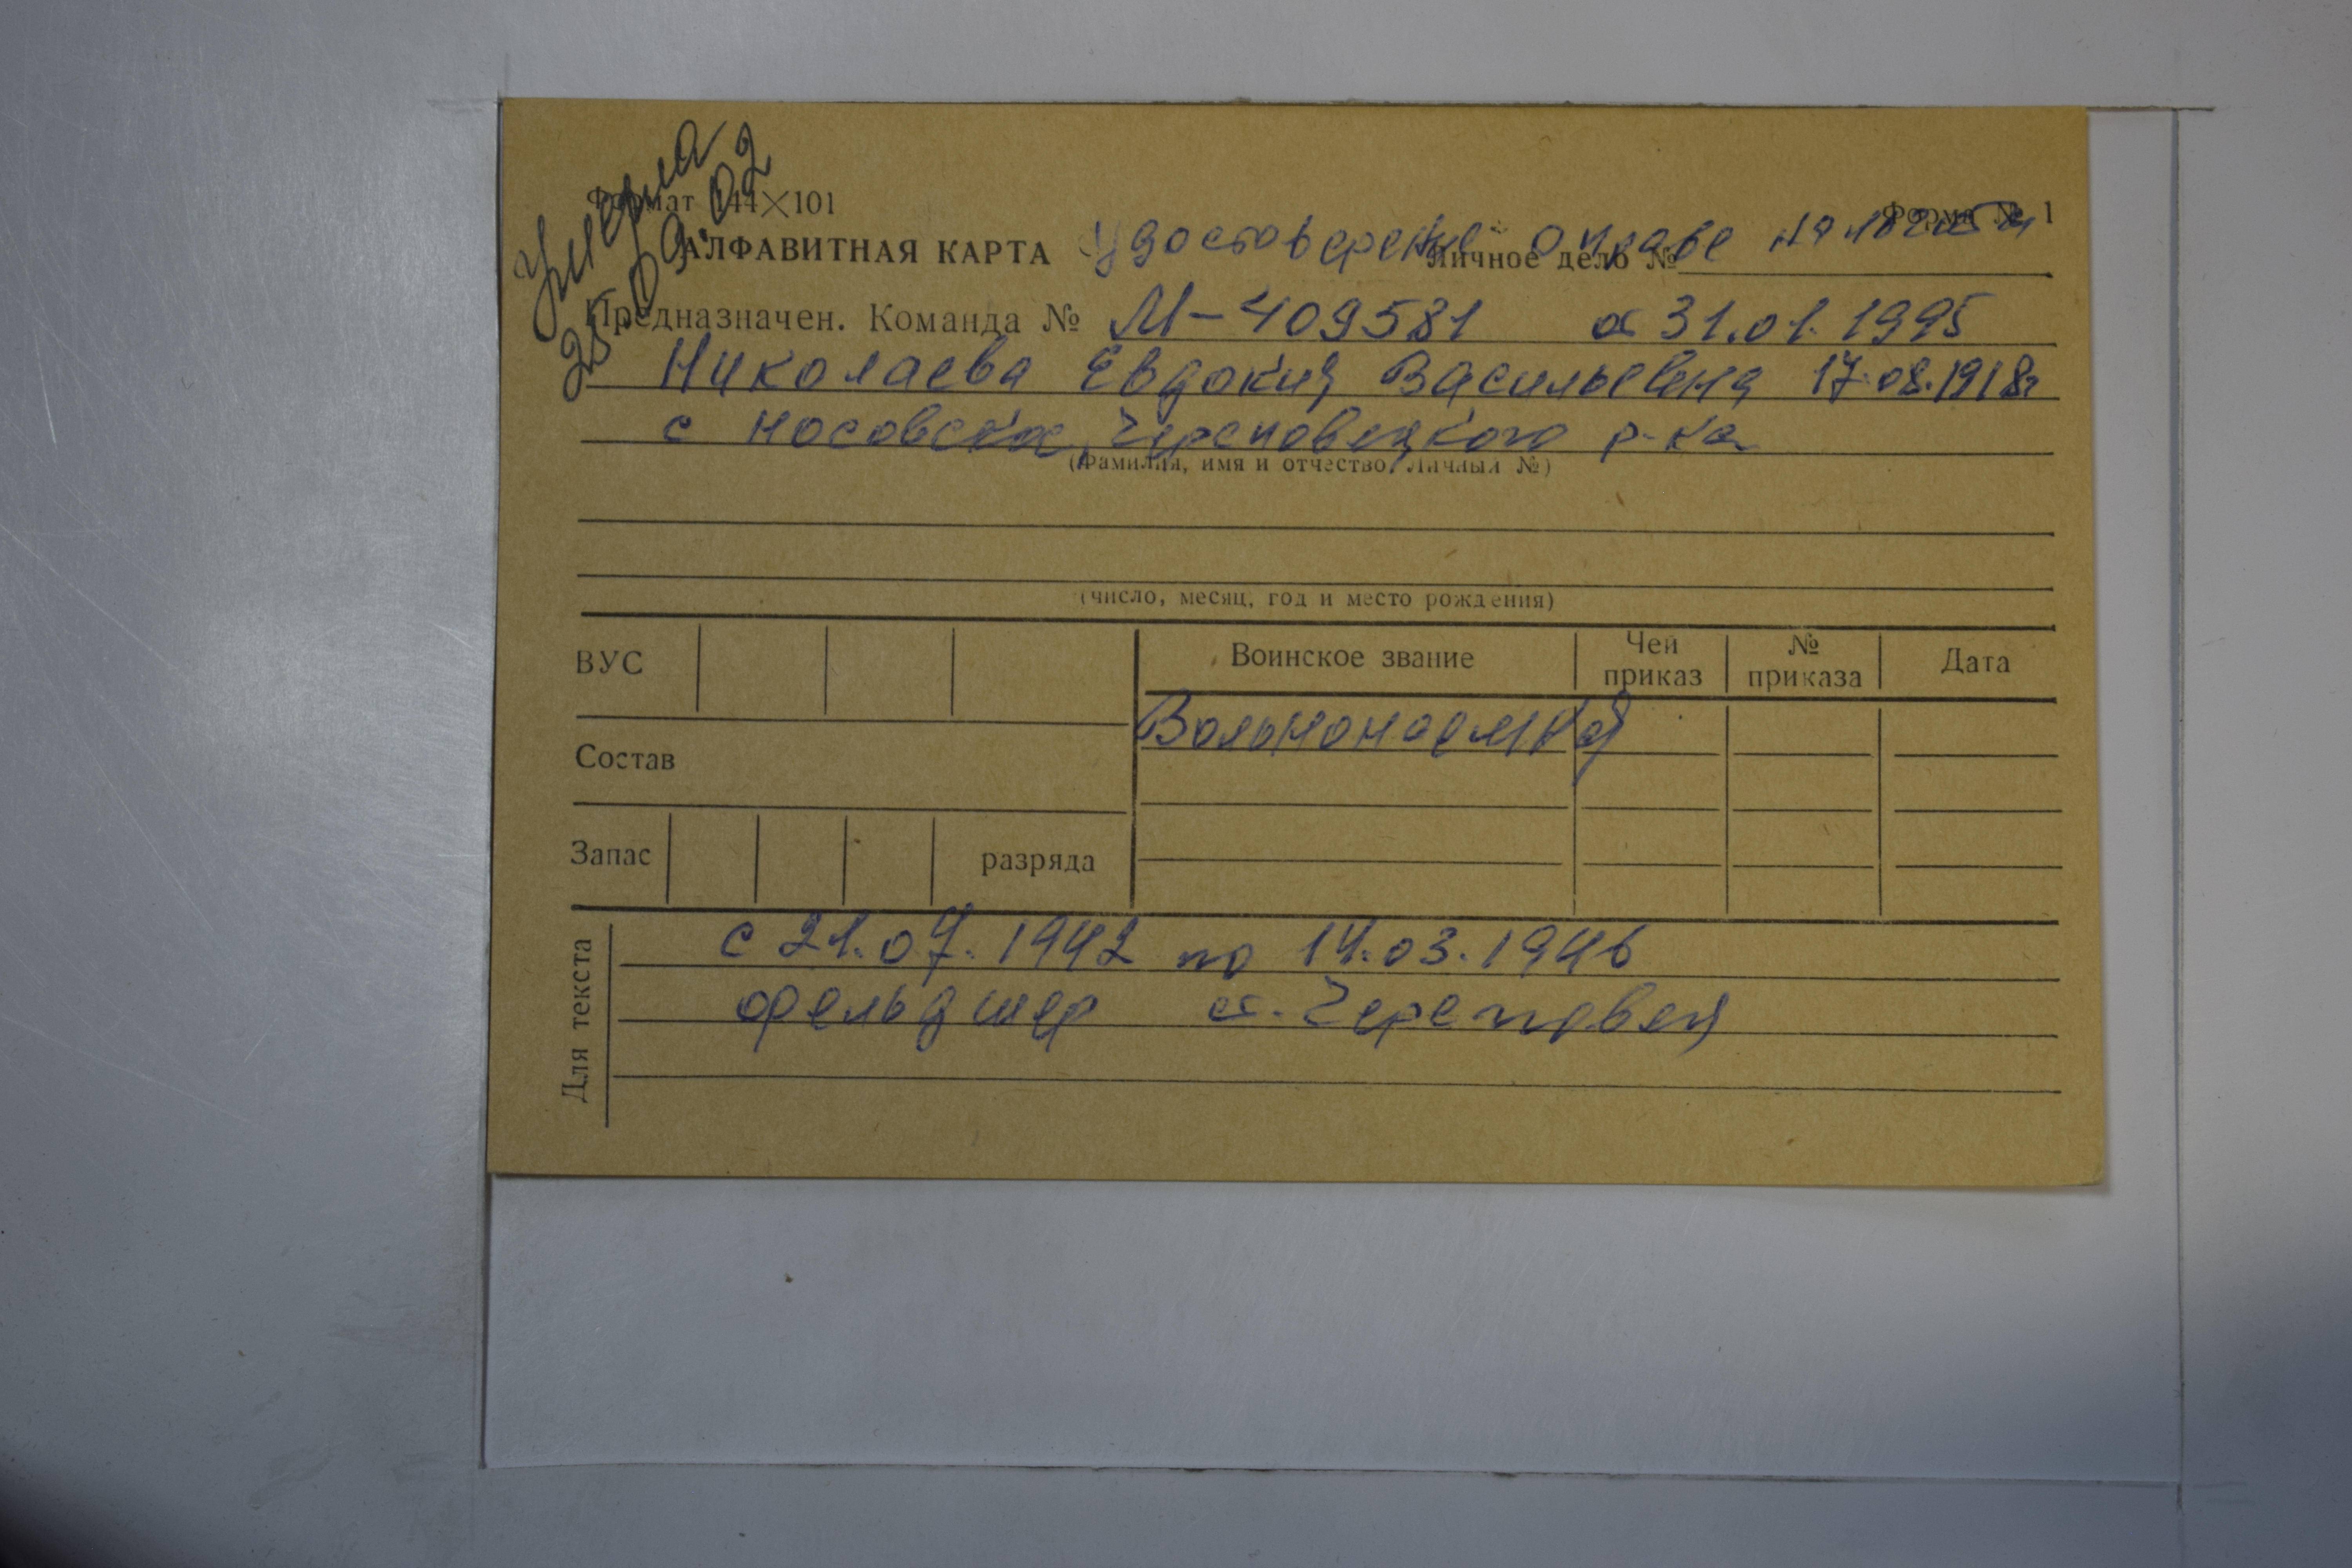 Умерла
25.09.02
Формат 144×101
Форма № 1
АЛФАВИТНАЯ КАРТА
Удостоверение о праве на льготы
Личное дело №
Предназначен. Команда № М-409581 от 31.01.1995
Николаева Евдокия Васильевна 17.08.1918г
с Носовское, Череповецкого р-ка
(Фамилия, имя и отчество, Личный №)
(число, месяц, год и место рождения)
ВУС
Воинское звание
Чей приказ
№ приказа
Дата
Вольнонаемная
Состав
Запас
разряда
Для текста
с 21.07.1942 по 14.03.1946
фельдшер ст. Череповец